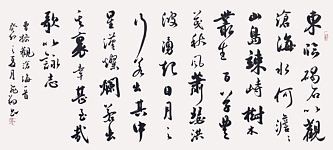 東臨碣石以觀
滄海水何澹澹
山島竦峙樹木
叢生百草豐
茂秋風蕭瑟洪
波涌起日月之
行若出其中
星漢燦爛若出
其裏幸甚至哉
歌以詠志
觀滄海